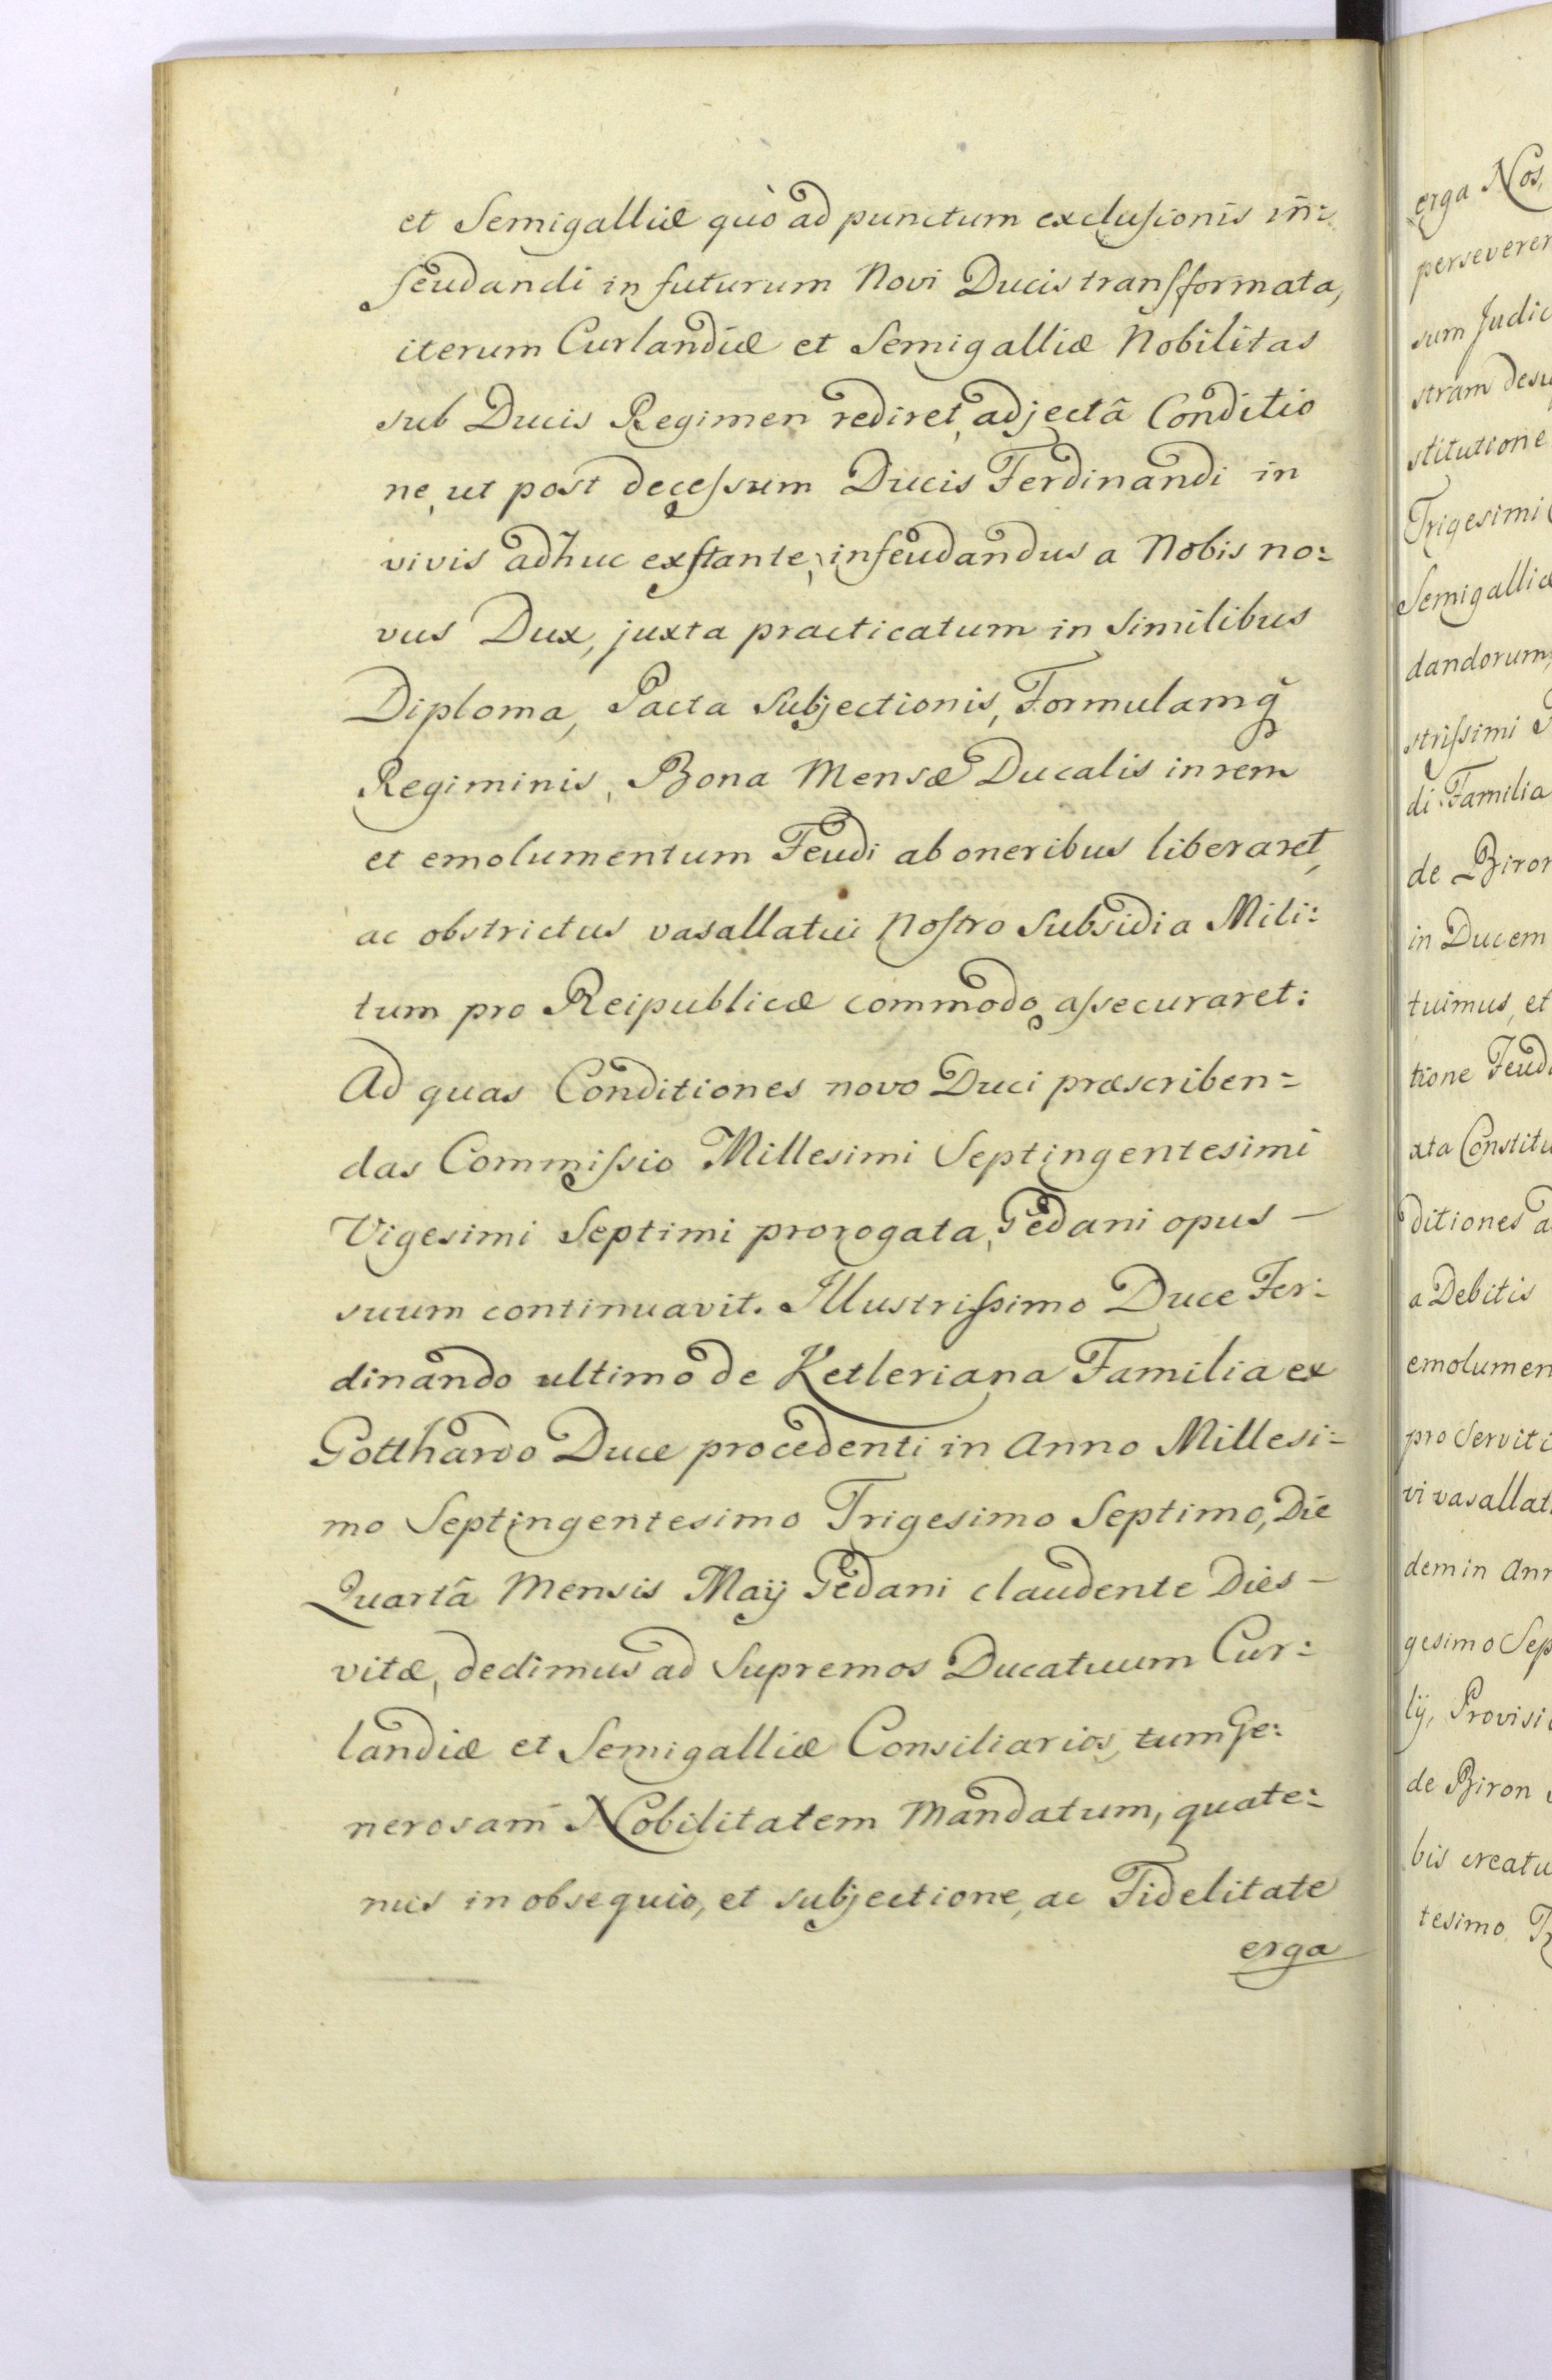 et Semigalliæ quò ad punctum exclusionis in:
feudandi in futurum Novi Ducis transformata,
iterum Curlandiæ et Semigalliæ Nobilitas
sub Ducis Regimen rediret, adjectâ Conditio
ne, ut post decessum Ducis Ferdinandi in
vivis adhuc exstante, infeudandus a Nobis no:
vus Dux, juxta practicatum in similibus
Diploma, Pacta Subjectionis, Formulamq̃
Regiminis, Bona Mensæ Ducalis in rem
et emolumentum Feudi ab oneribus liberaret,
ac obstrictus vasallatui Nostro Subsidia Mili:
tum pro Reipublicæ commodo assecuraret:
Ad quas Conditiones novo Duci præscriben=
das Commissio Millesimi Septingentesimi
Vigesimi Septimi prorogata, Gedani opus —
suum continuavit. Illustrissimo Duce Fer:
dinando ultimo de Ketleriana Familia ex
Gotthardo Duce procedenti in Anno Millesi=
mo Septingentesimo Trigesimo Septimo, Die
Quartâ Mensis Maij Gedani claudente Dies —
vitæ, dedimus ad Supremos Ducatuum Cur:
landiæ et Semigalliæ Consiliarios, tum Ge:
nerosam Nobilitatem Mandatum, quate:
nus in obsequio, et subjectione, ac Fidelitate
erga
erga Nos,
perseverer
sum Judic
stram desu
stitutione
Trigesimi
Semigalliæ
dandorum,
strissimi
di Familia
de Biron
in Ducem
tuimus, et
tione Feud
xta Constitu
ditiones a
a Debitis
emolumen
pro Serviti
vi vasallat
dem in Ann
gesimo Sep
lij, Provisi
de Biron
bis creatu
tesimo Tr